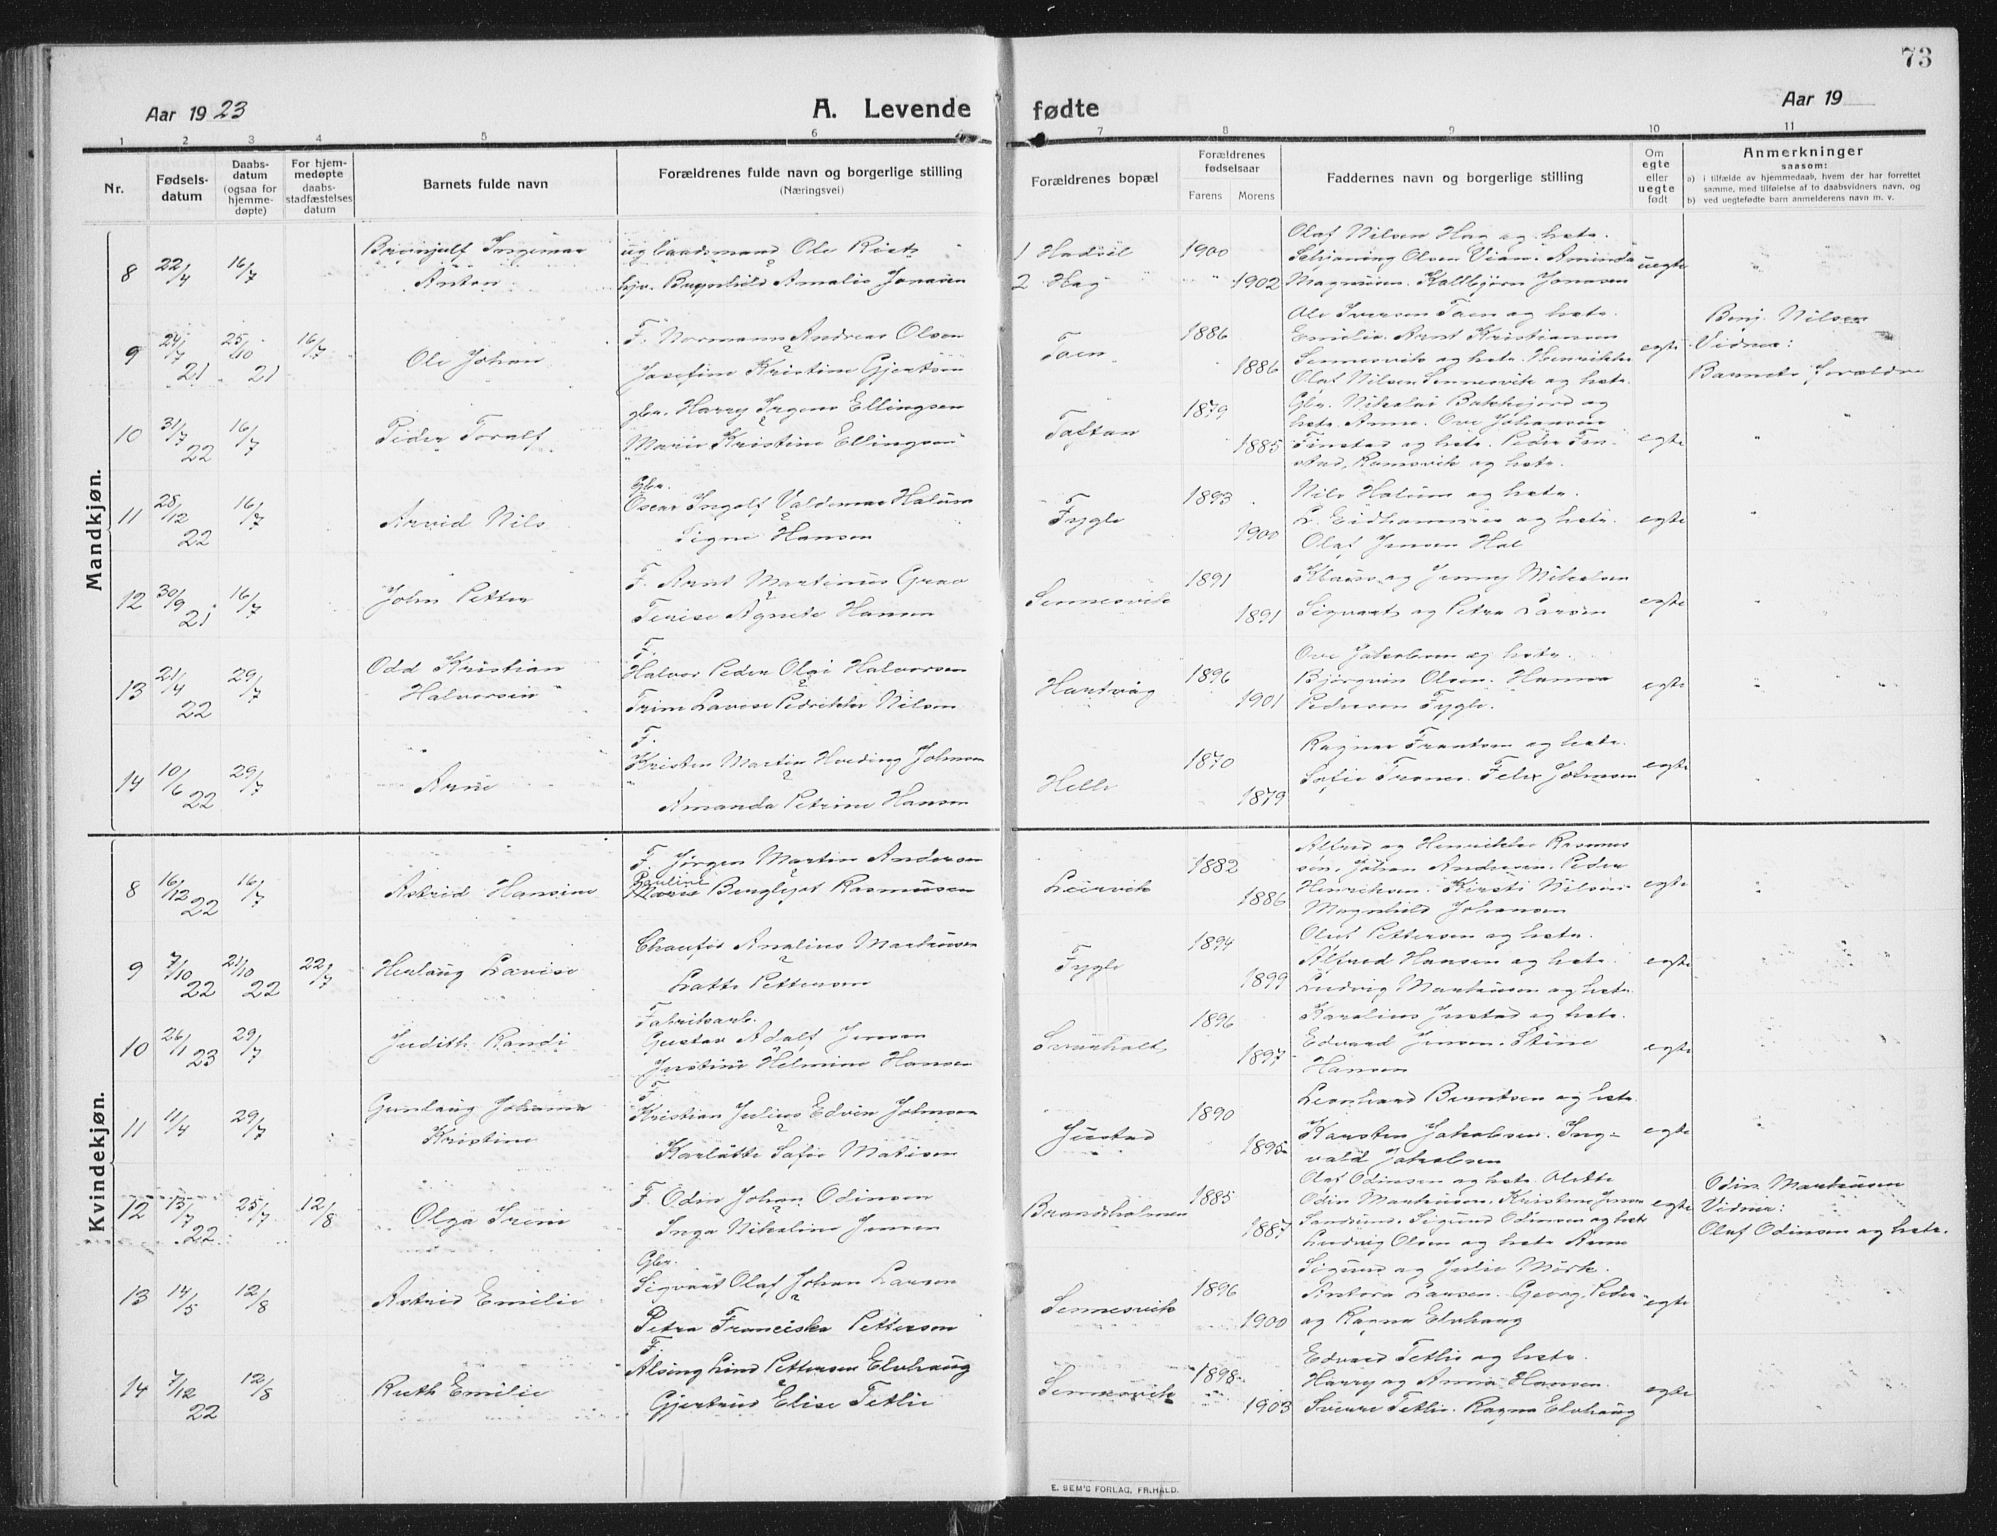 73
Aar 1923
A. Levende fødte
Aar 19
1 2 3 4 5 6 7 8 9 10 11
Nr.
Fødsels-
datum
Daabs-
datum
(ogsaa for
hjemme-
døpte)
For hjem-
medøpte
daabs-
stadfæstelses
datum
Barnets fulde navn
Forældrenes fulde navn og borgerlige stilling
(Næringsvei)
Forældrenes bopæl
Forældrenes
fødselsaar
Farens Morens
Faddernes navn og borgerlige stilling
Om
egte
eller
uegte
født
Anmerkninger
saasom:
a) i tilfælde av hjemmedaab, hvem der har forrettet
samme, med tilføielse av to daabsvidners navn, og
b) ved uegtefødte barn anmelderens navn m. v.
Mandkjøn.
8 22/4 16/7 Brynjulf Ingemar
Anton
Ole
Amalie Jensen
1 Hadsel
2 Hag
1900
1902
Olaf Nilsen Hag og hstr.
Olsen
uegte
9 24/7 21 25/10 21 16/7 Ole Johan
F. Normann Andreas Olsen
Josefine Kristine Gjertsen
Taen
1886
1886
Ole Iversen Taen og hstr.
Emilie Arnt Kristiansen
Sennesvik og hstr. Henrikke
Olaf Nilsen Sennesvik og hstr.
egte
Benj. Nilsen
Vidner:
Barnets forældre
10 31/7 22 16/7 Peder Toralf
gbr. Harry Irgens Ellingsen
Marie Kristine Ellingsen
Taftan
1879
1885
Gbr. Nikolai og
hstr. Anne. Ove Johansen
Finstad og hstr. Peder Fin-
stad, Ramsvik og hstr.
egte
11 28/12 22 16/7 Arvid Nils
Gbr.
Oscar Ingolf Valdemar Halsen
Signe Hansen
Fygle
1893
1900
Nils og hstr.
og hstr.
Olaf Jensen Hol
egte
12 30/9 21 16/7 John Petter
F. Arnt Martinus Grav
Agnete Hansen
Sennesvik
1891
1891
Klaus og Jenny Mikalsen
Sigvart og Petra Larsen
egte
13 21/4 22 29/7 Odd Kristian
Halvorsen
F.
Halvor Peder Olai Halvorsen
Trine Lovise Pedrikke Nilsen
Hartvåg
1896
1901
Ove Jakobsen og hstr.
Bjørgvin Olsen. Hanna
Pedersen Fygle.
egte
14 10/6 22 29/7 Arne
F.
Kristen Martin Hveding Johnsen
Amanda Petrine Hansen
Helle
1870
1879
Ragnar Frantsen og hstr.
Sofie Trones. Felix Johnsen
egte
Kvindekjøn.
8 16/12 22 16/7 Astrid Hansine
F. Jørgen Martin Andersen
Pauline
Bergljot Rasmussen
Leirvik
1882
1886
Alfred og Henrikke Rasmus
sen. Johan Andersen. Peder
Henriksen. Kirsti Nilsen
Magnhild Johansen
egte
9 7/10 22 21/10 22 22/7 Herlaug Lovise
Chaufør Analius Martinsen
Lotte Pettersen
Fygle
1894
1899
Oluf Pettersen og hstr.
Alfred Hansen og hstr.
Ludvig Martinsen og hstr.
egte
10 26/1 23 29/7 Judith Randi
Fabrikarb.
Gustav Adolf Jensen
Justine Helmine Hansen
Svarholt
1896
1897
Karolius Justad og hstr.
Edvard Jensen. Stine
Hansen
egte
11 11/4 29/7 Gunlaug Johanna
Kristine
F.
Kristian Julius Edvin Johnsen
Karlotte Sofie Matisen
Justad
1890
1895
Leonhard Berntsen og hstr.
Karsten Jakobsen. Ing-
vald Jakobsen
egte
12 13/7 22 25/7 12/8 Olga Irene
F. Odin Johan Odinsen
Inga Nikoline Jensen
Brandsholmen
1885
1887
Olaf Odinsen og hstr. Alette
Odin Martinsen. Kristine Jensen
Sandsund. Sigurd Odinsen og hstr.
Ludvig Olsen og hstr. Anne
egte
Odin Martinsen
Vidner:
Olaf Odinsen og hstr.
13 14/5 12/8 Astrid Emilie
Gbr.
Sigvart Olaf Johan Larsen
Petra Franciska Pettersen
Sennesvik
1896
1900
Sigurd og Julie Mørk.
Antora Larsen. Georg, Peder
og Ragna Elvhaug
egte
14 7/12 22 12/8 Ruth Emilie
F.
Alsing Lind Pettersen Elvhaug
Gjertrud Elise Tetlie
Sennesvik
1898
1903
Edvard Tetlie og hstr.
Harry og Anna Hansen.
Sverre Tetlie. Ragna Elvhaug
egte
E. SEM'S FORLAG, FR.HALD.